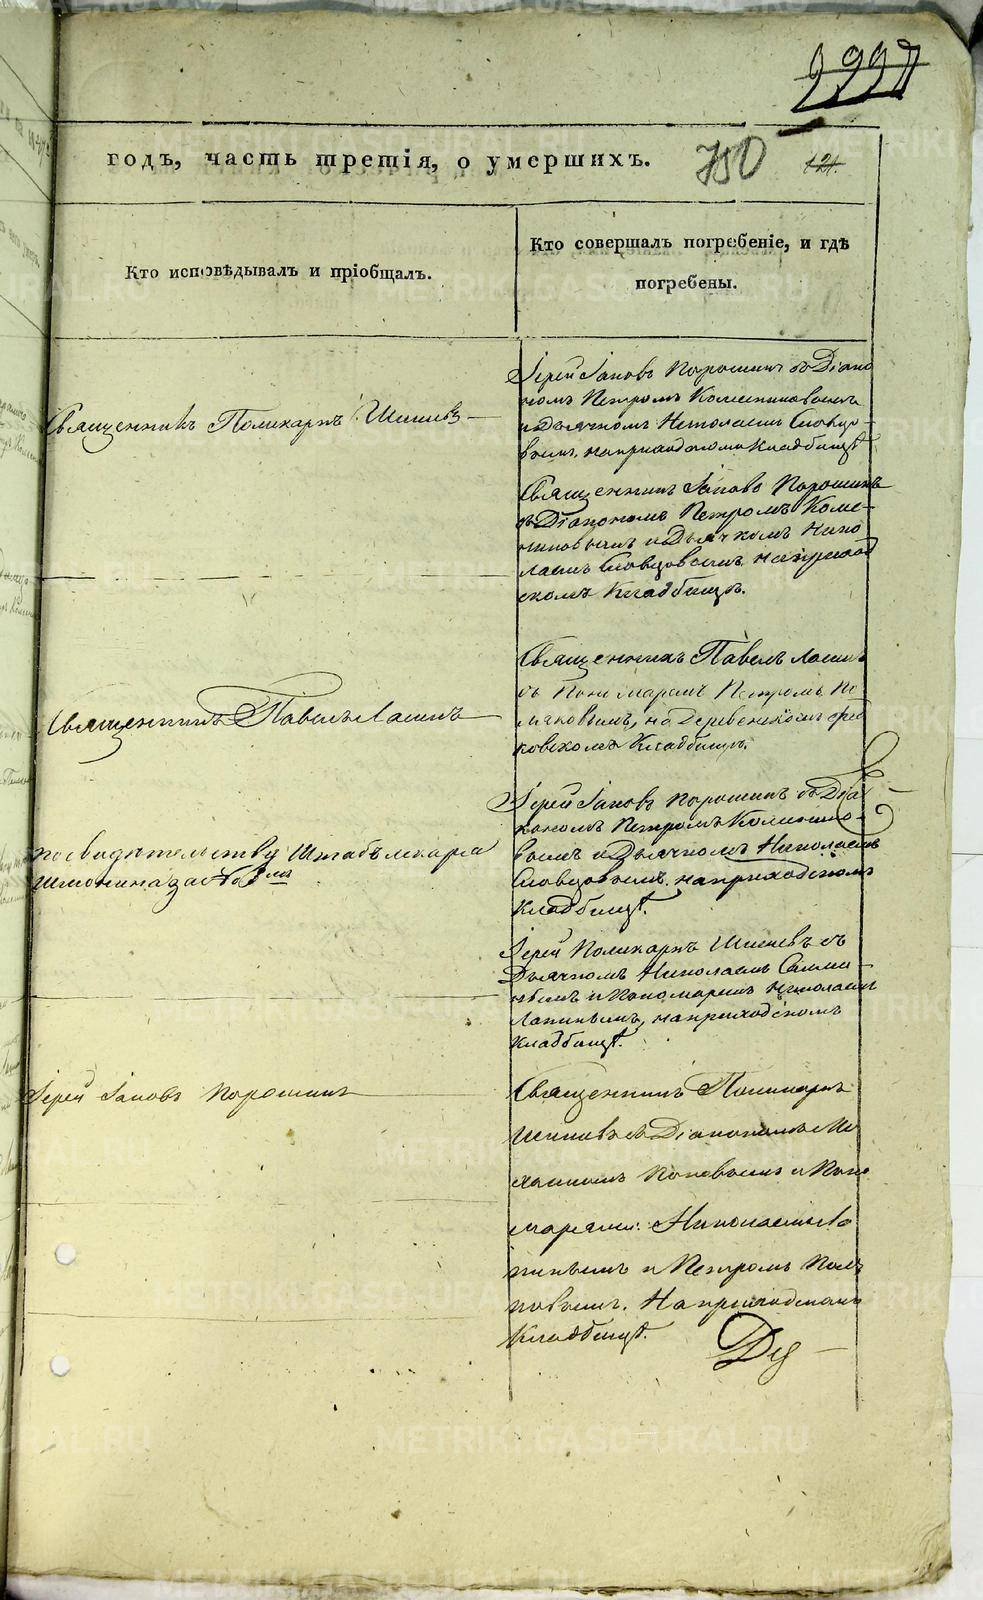 годъ, часть третія, о умершихъ.
750
121.
Кто исповѣдывалъ и пріобщалъ.
Кто совершалъ погребеніе, и гдѣ
погребены.
Священникъ Поликарпъ Шишевъ
Іерей Іаковъ Порошинъ съ Діако
номъ Петромъ
и Дьячкомъ Николаемъ Словцо-
вымъ, на приходскомъ Кладбищѣ
Священникъ Іаковъ Порошинъ
съ Діакономъ Петромъ
и Дьячкомъ Нико
лаемъ Словцовымъ, на приход
скомъ Кладбищѣ.
Священникъ Павелъ Лапинъ
Священникъ Павелъ Лапинъ
съ Пономаремъ Петромъ По
на деревенскомъ
ковскомъ Кладбищѣ.
по свидѣтельству Штабъ лекаря
Іерей Іаковъ Порошинъ съ Діа
кономъ Петромъ
вымъ и Дьячкомъ Николаемъ
Словцовымъ, на приходскомъ
Кладбищѣ.
Іерей Поликарпъ Шишевъ съ
Дьячкомъ Николаемъ
и Пономаремъ Николаемъ
Лапинымъ, на приходскомъ
Кладбищѣ.
Іерей Іаковъ Порошинъ
Священникъ Поликарпъ
Шишевъ съ Діакономъ Ми
хаиломъ Поповымъ и Поно
марями: Николаемъ Ла
пинымъ и Петромъ Поля
ковымъ. На приходскомъ
Кладбищѣ.
Ду
METRIKI.GASO-URAL.RU